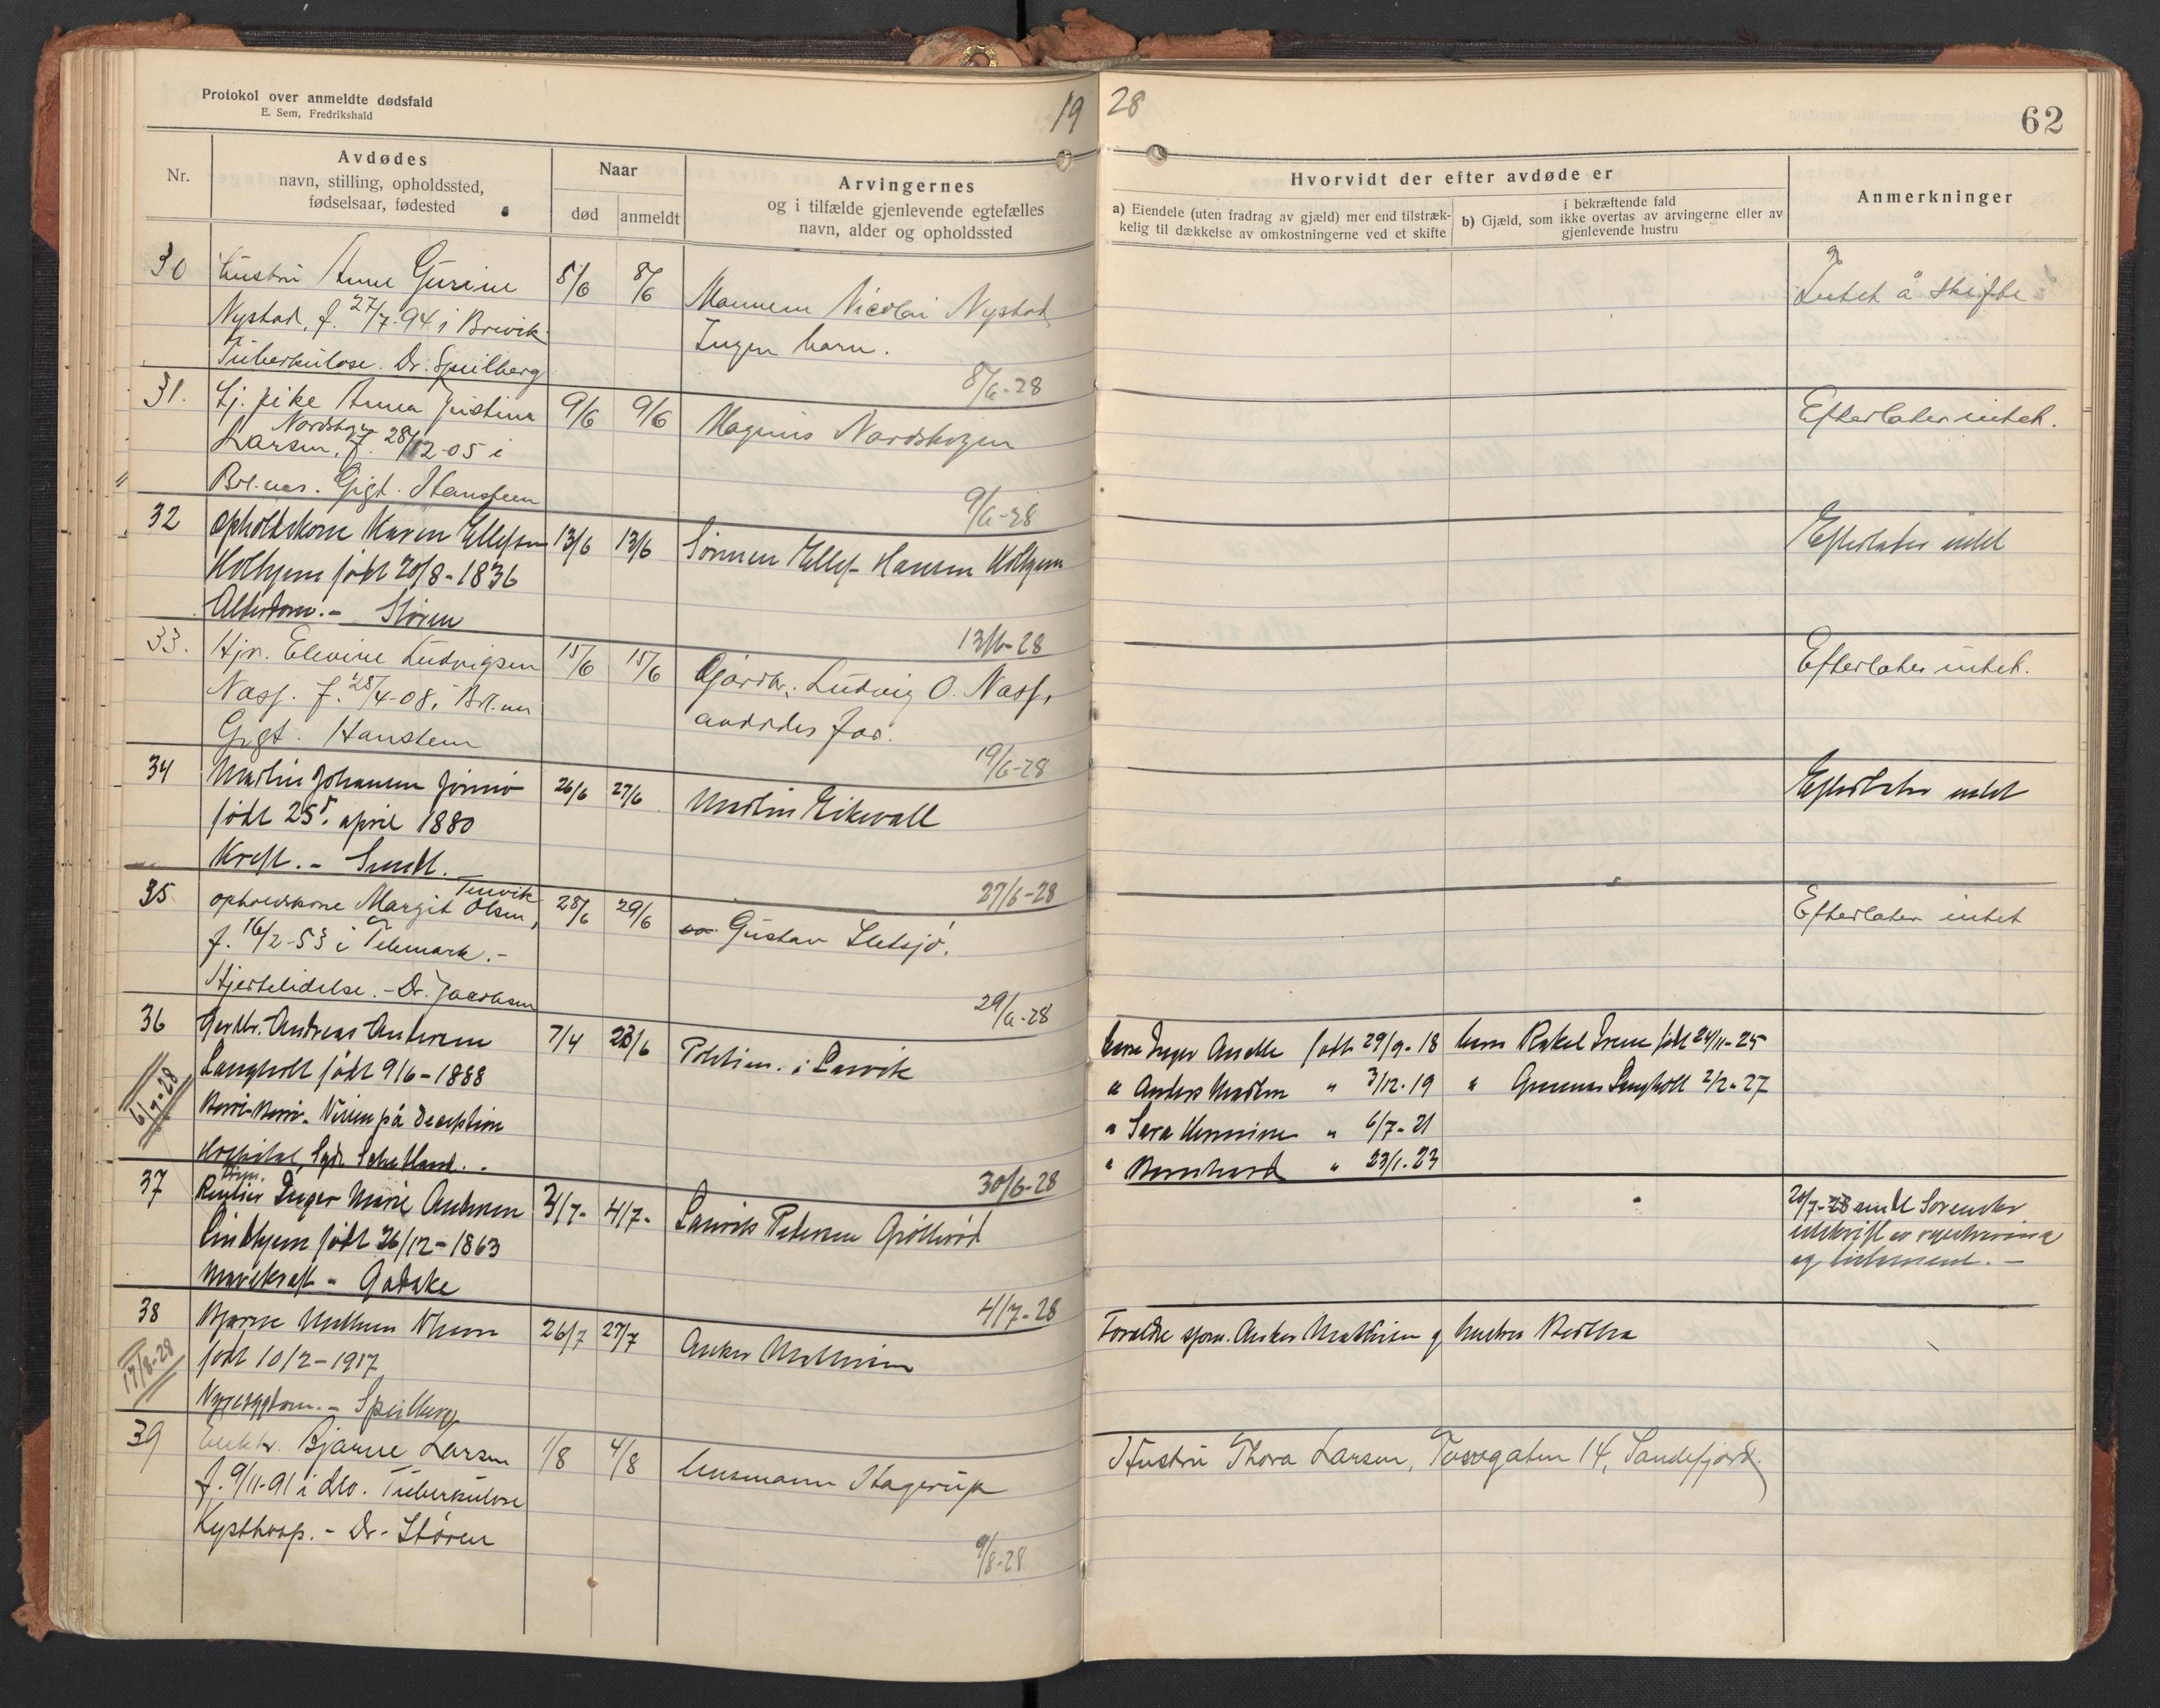 Protokol over anmeldte dødsfald
E. Sem, Fredrikshald
19 28
62
Nr.
Avdødes
navn, stilling, opholdssted,
fødselsaar, fødested
Naar
død
anmeldt
Arvingernes
og i tilfælde gjenlevende egtefælles
navn, alder og opholdssted
Hvorvidt der efter avdøde er
a) Eiendele (uten fradrag av gjæld) mer end tilstræk-
kelig til dækkelse av omkostningerne ved et skifte
i bekræftende fald
b) Gjæld, som ikke overtas av arvingerne eller av
gjenlevende hustru
Anmerkninger
30 hustru Anne Gurine 8/6
Nystad, f. 27/7-94 i Brevik
Tuberkulose. Dr. Speilberg
Mannen Nicolai Nystad
Ingen barn.
8/6-28
Intet å skifte
31. pike Anna Justina 9/6 9/6
Nordskogen
Larsen, f. 28/12-05 i
Br.l.nes. Gigt. Hansteen
Magnus Nordskogen
9/6-28
Efterlater intet.
32 opholdskone Maren Ellefsen 13/6 13/6
Holtgem født 20/8-1836
Alderdom.- Støren
Sønnen Ellef Hansen
13/6-28
Efterlater intet
33. Hjv. Elevine Ludvigsen 15/6 15/6
Nass. f. 28/4-08, i
Gigt. Hansteen
Gårdbr. Ludvig O. Nass,
avdødes far.
19/6-28
Efterlater intet.
34 Martin Johansen 26/6 27/6
født 25. april 1880
Kreft. - Sundt.
Martin Eikevall
27/6-28
Efterlater intet
35 opholdskone Margit Olsen, 28/6 29/6
f. 16/2-53 i Telemark.-
Hjertelidelse. - Dr. Jacobsen
Gustav Sletsjø.
29/6-28
Efterlater intet
36 Gårdbr. Andreas Andersen 7/4 28/6
Langholt født 9/6-1888
Berri-Berri. på Deception
Hospital, Syd Schetland.
6/7-28
Politim. i Larvik
30/6-28
barn Inger født 29/9-18
" Anders Martin " 3/12-19
" Sara " 6/7-21
" Bernhard " 23/1-23
barn Rakel Irene født 24/11-25
" Gunnar Langholt 2/2-27
37 Inger Marie Andersen 3/7- 4/7-
født 26/12-1863
Mavekraft - Gatske
Laurits Petersen
4/7-28
20/7-28 sendt Sorensk.
utskrift av registrering
og testament.-
38 Bjarne 26/7 27/7
født 10/2-1917
Nyresygdom. - Speilberg
17/8-28
Anker Mathisen
Foreldre sjøm. Anker Mathisen og hustru Bertha
39 Bjarne Larsen 1/8 4/8
f. 9/11-91 i Tuberkulose
Kysthosp. - Dr. Støren
lensmann Hagerup
9/8-28
Hustru Thora Larsen, 14, Sandefjord.